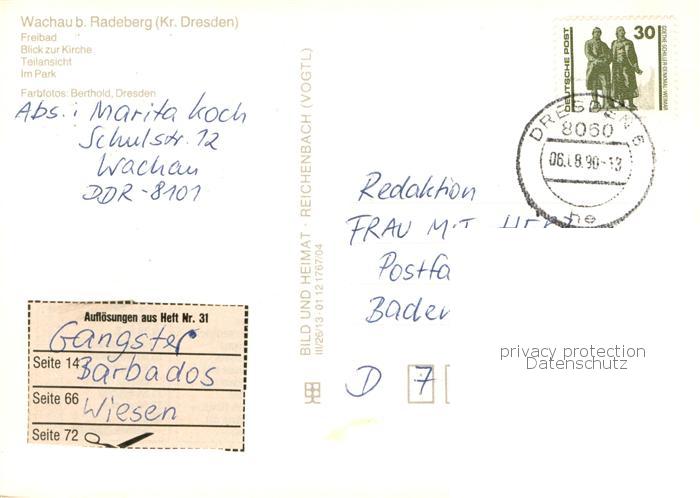 Wachau b. Radeberg (Kr. Dresden)
Freibad
Blick zur Kirche
Teilansicht
Im Park
Farbfotos: Berthold, Dresden
Abs.: Marita Koch
Schulstr. 12
Wachau
DDR-8101
BILD UND HEIMAT · REICHENBACH (VOGTL)
III/26/13 · 01 12 1767/04
DEUTSCHE POST
30
GOETHE-SCHILLER-DENKMAL WEIMAR
DRESDEN 6
8060
06.-8.90-13
he
Redaktion
FRAU MIT
Postfa
Baden
D 7
Auflösungen aus Heft Nr. 31
Gangster
Seite 14
Barbados
Seite 66
Wiesen
Seite 72
privacy protection
Datenschutz